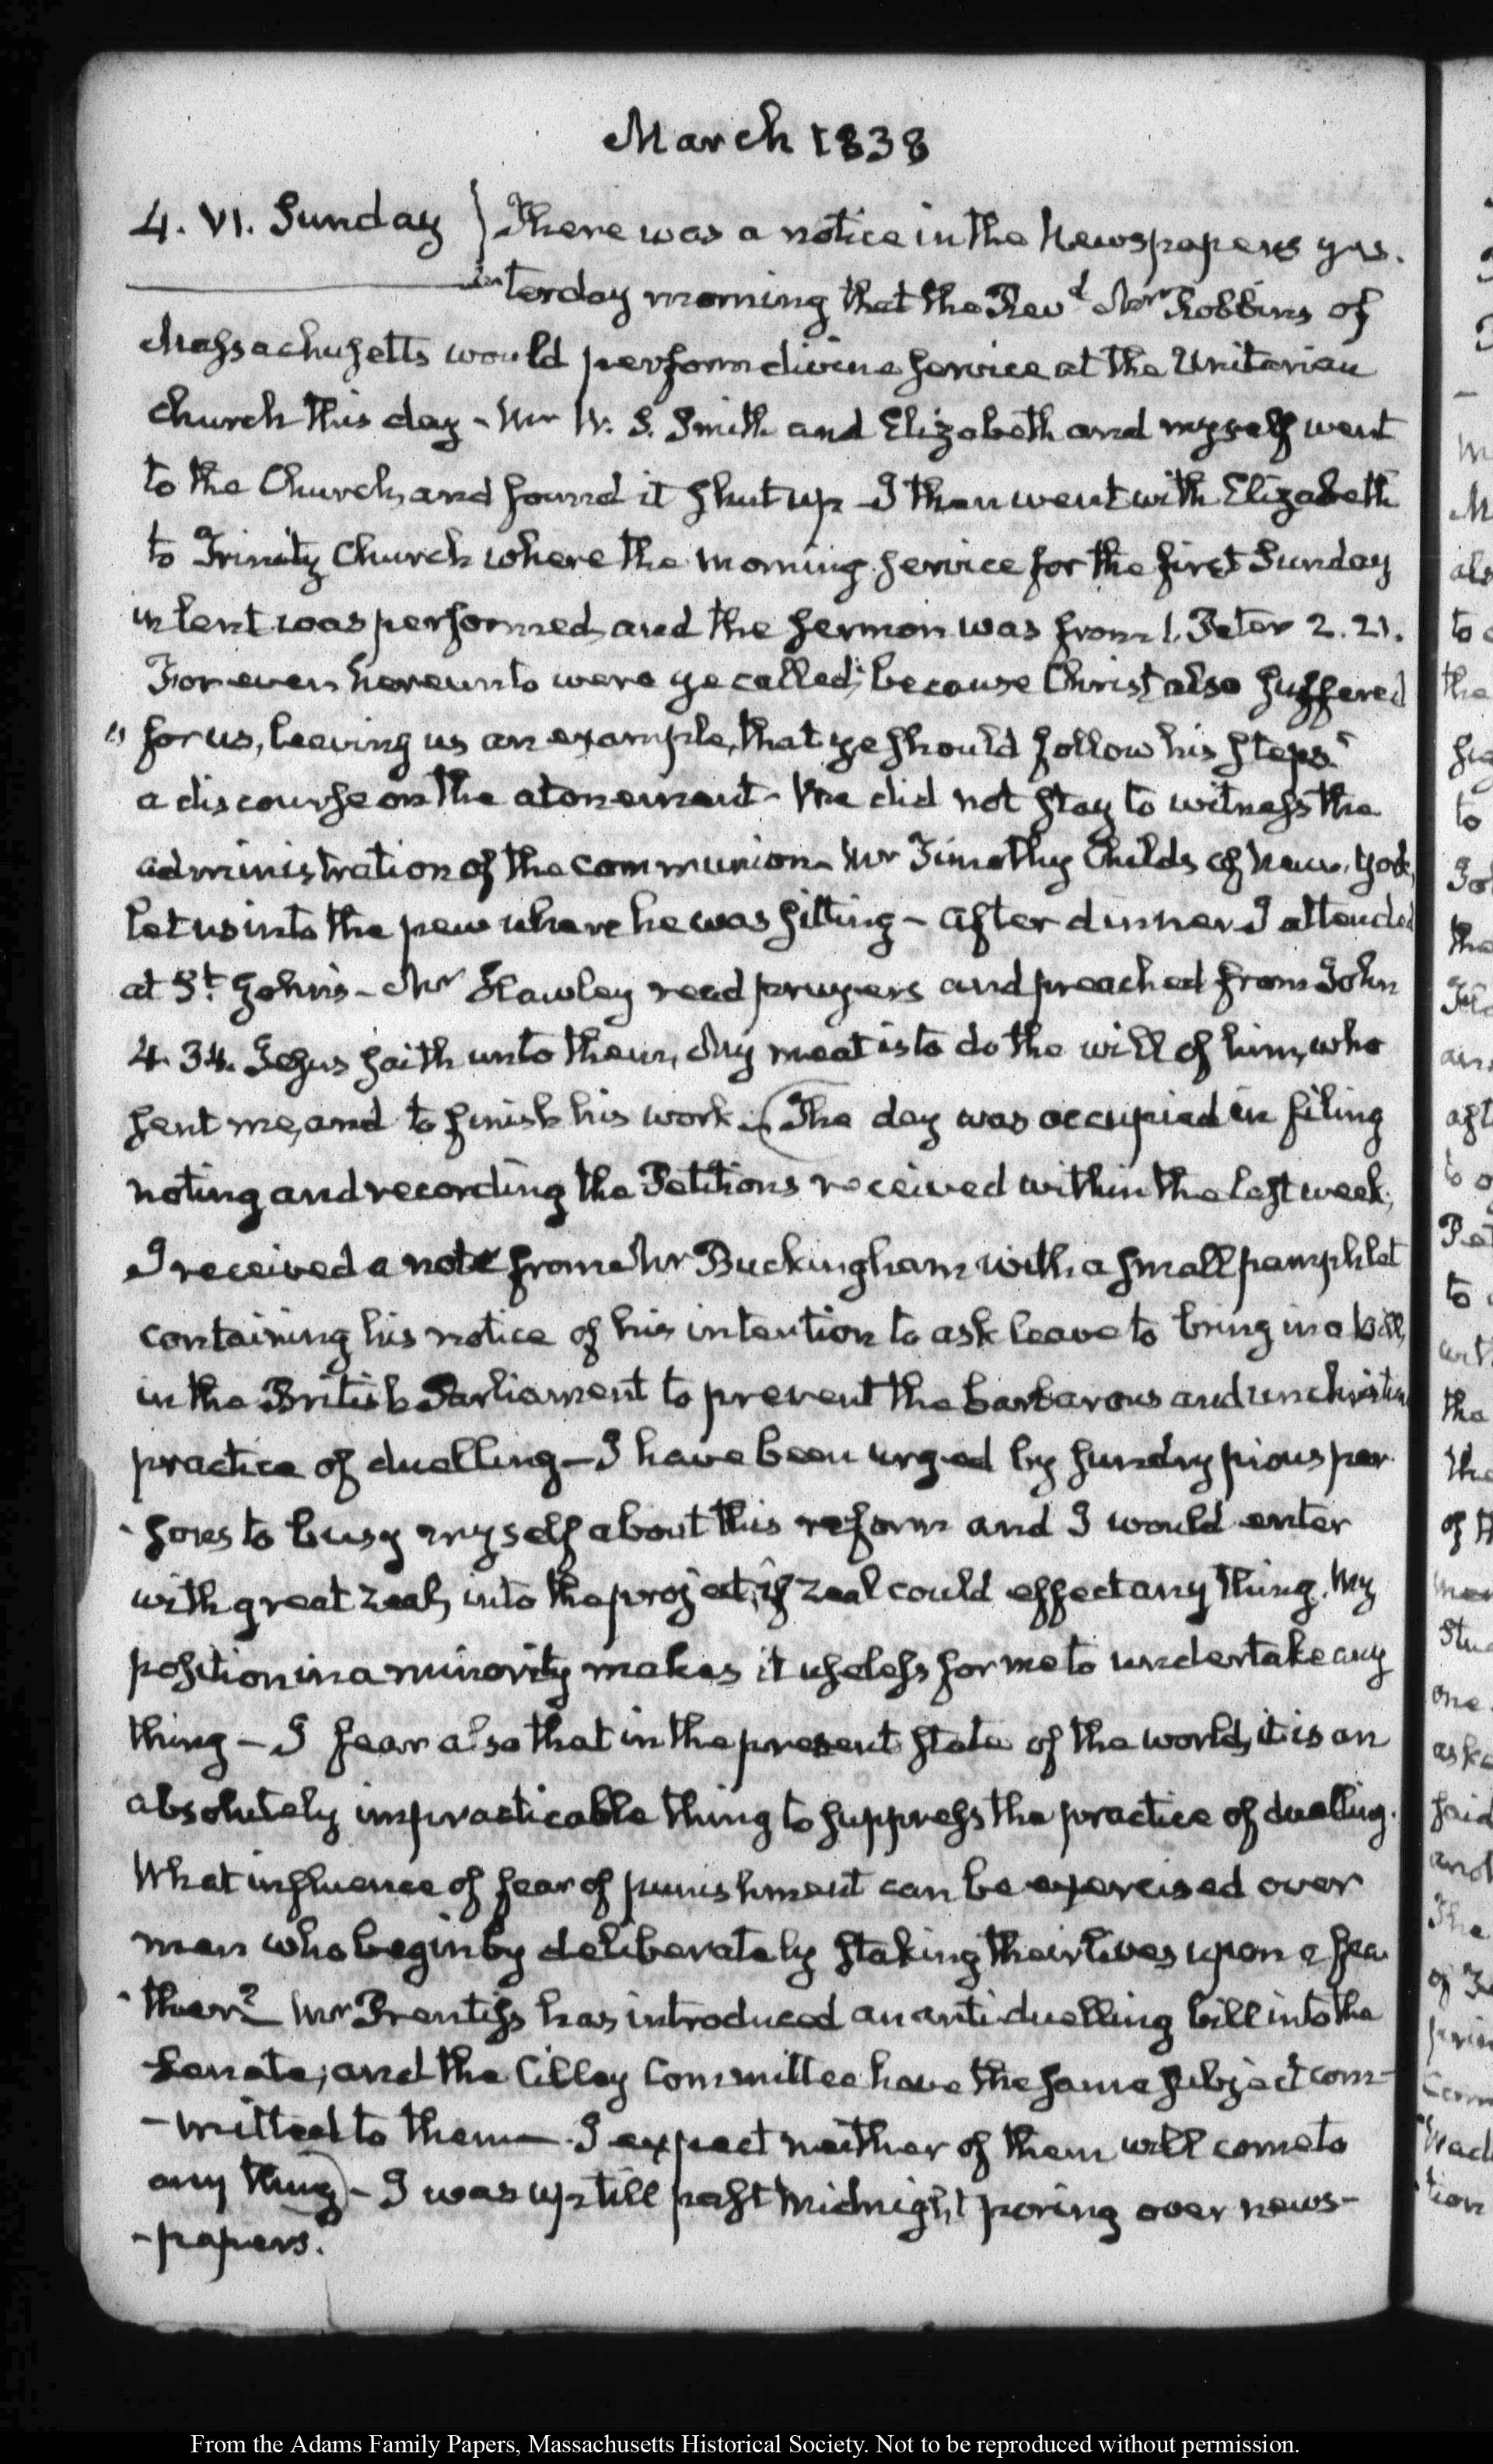 March 1838
4. VI. Sunday } There was a notice in the Newspapers yes-
terday morning that the Revd. Mr Robbins of
Massachusetts would perform divine service at the Unitarian
Church this day - Mr W. S. Smith and Elizabeth and myself went
to the Church, and found it shut up - I then went with Elizabeth
to Trinity Church where the morning service for the first Sunday
in Lent was performed, and the sermon was from 1. Peter 2. 21.
For even hereunto were ye called: because Christ also suffered
" for us, leaving us an example, that ye should follow his steps"
a discourse on the atonement - We did not stay to witness the
administration of the communion - Mr Timothy Childs of New-York,
let us into the pew where he was sitting - After dinner I attended
at St. John's - Mr Hawley read prayers and preached from John
4. 34. Jesus saith unto them, My meat is to do the will of him, who
sent me, and to finish his work - (The day was occupied in filing
noting and recording the Petitions received within the last week.
I received a note from Mr Buckingham with a small pamphlet
containing his notice of his intention to ask leave to bring in a bill,
in the British Parliament to prevent the barbarous and unchristian
practice of duelling - I have been urged by sundry pious per-
-sons to busy myself about this reform and I would enter
with great zeal, into the project, if zeal could effect any thing. My
position in a minority makes it useless for me to undertake any
thing - I fear also that in the present state of the world, it is an
absolutely impracticable thing to suppress the practice of duelling.
What influence of fear of punishment can be exercised over
men who begin by deliberately staking their lives upon a fea-
-ther? Mr Prentiss has introduced an anti duelling bill into the
Senate; and the Cilley Committee have the same subject com-
-mitted to them - I expect neither of them will come to
any thing) - I was up till past midnight poring over news-
-papers.
From the Adams Family Papers, Massachusetts Historical Society. Not to be reproduced without permission.